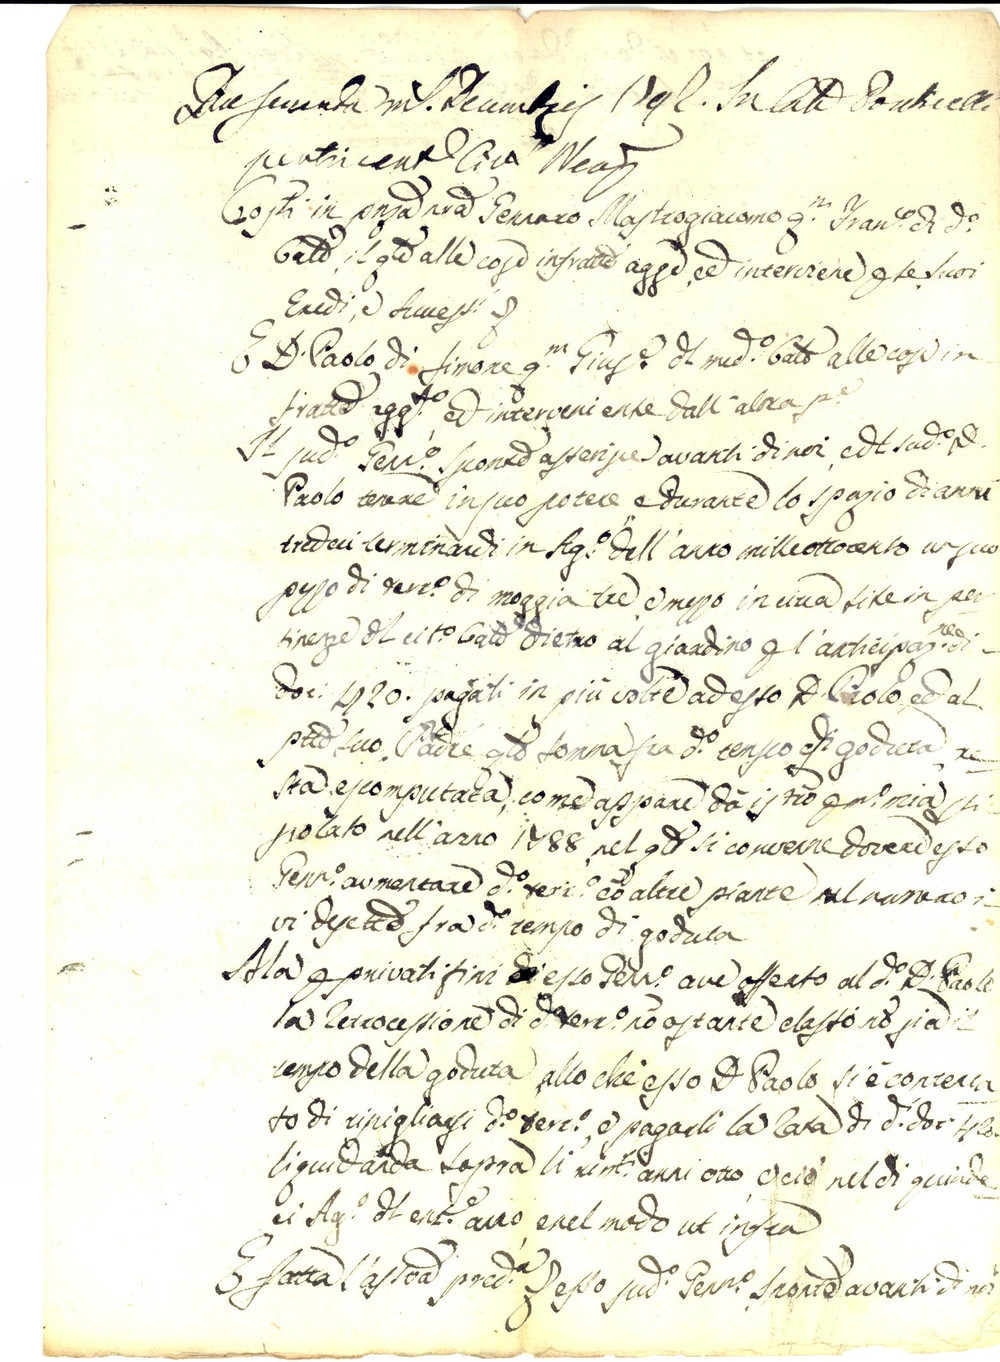 Die secunda m.s Decembris 1792. In Cat.e Ponticelli
pertinent.m Civ.s Neap.
Cost.i in pnza nra Gennaro Mastrogiacomo q.m Fran.co di d.o
Cale, il qle alle cose infratte agge, ed interviene p se, suoi
Eredi, e success.i &
E D. Paolo di Simone q.m Gius.e dl med.o Cale alle cose in
fratte agg.te, ed interveniente dall'altra p.e
Il sud.o Genn.o sponte asserisce avanti di noi, e dl sud.o D.
Paolo tenere in suo potere e durante lo spazio di anni
tredeci terminandi in Ag.o dell'anno milleottocento un suo
pezzo di terr.o di moggia tre, e mezzo in circa site in per
tinenze dl cit.o Cale dietro al giardino p l'anticipaz.ne di
doc: 420. pagati in più volte ad esso D. Paolo, ed al
ptto suo Padre qle somma fra d.o tempo di goduta re
sta escomputata, come appare da istro p m.o mia sti
polato nell'anno 1788, nel qle si convenne dovere esso
Genn.o aumentare d.o terr.o co altre piante nel numero i
vi desctto fra d.o tempo di goduta
Ma p privati fini di esso Genn.o ave offerto al d.o D. Paolo
la retrocessione di d.o terr.o nō ostante elasso nō sia il
tempo della goduta, allo che esso D. Paolo si è contenta
to di ripigliarsi d.o terr.o, e pagarli la rata di d.i doc: 420
liquidanda sopra li rim.ti anni otto, e ciò nel dì quinde
ci Ag.o dl ent.e anno, e nel modo ut infra
E fatta l'astva pred.a esso sud.o Genn.o sponte avanti di noi